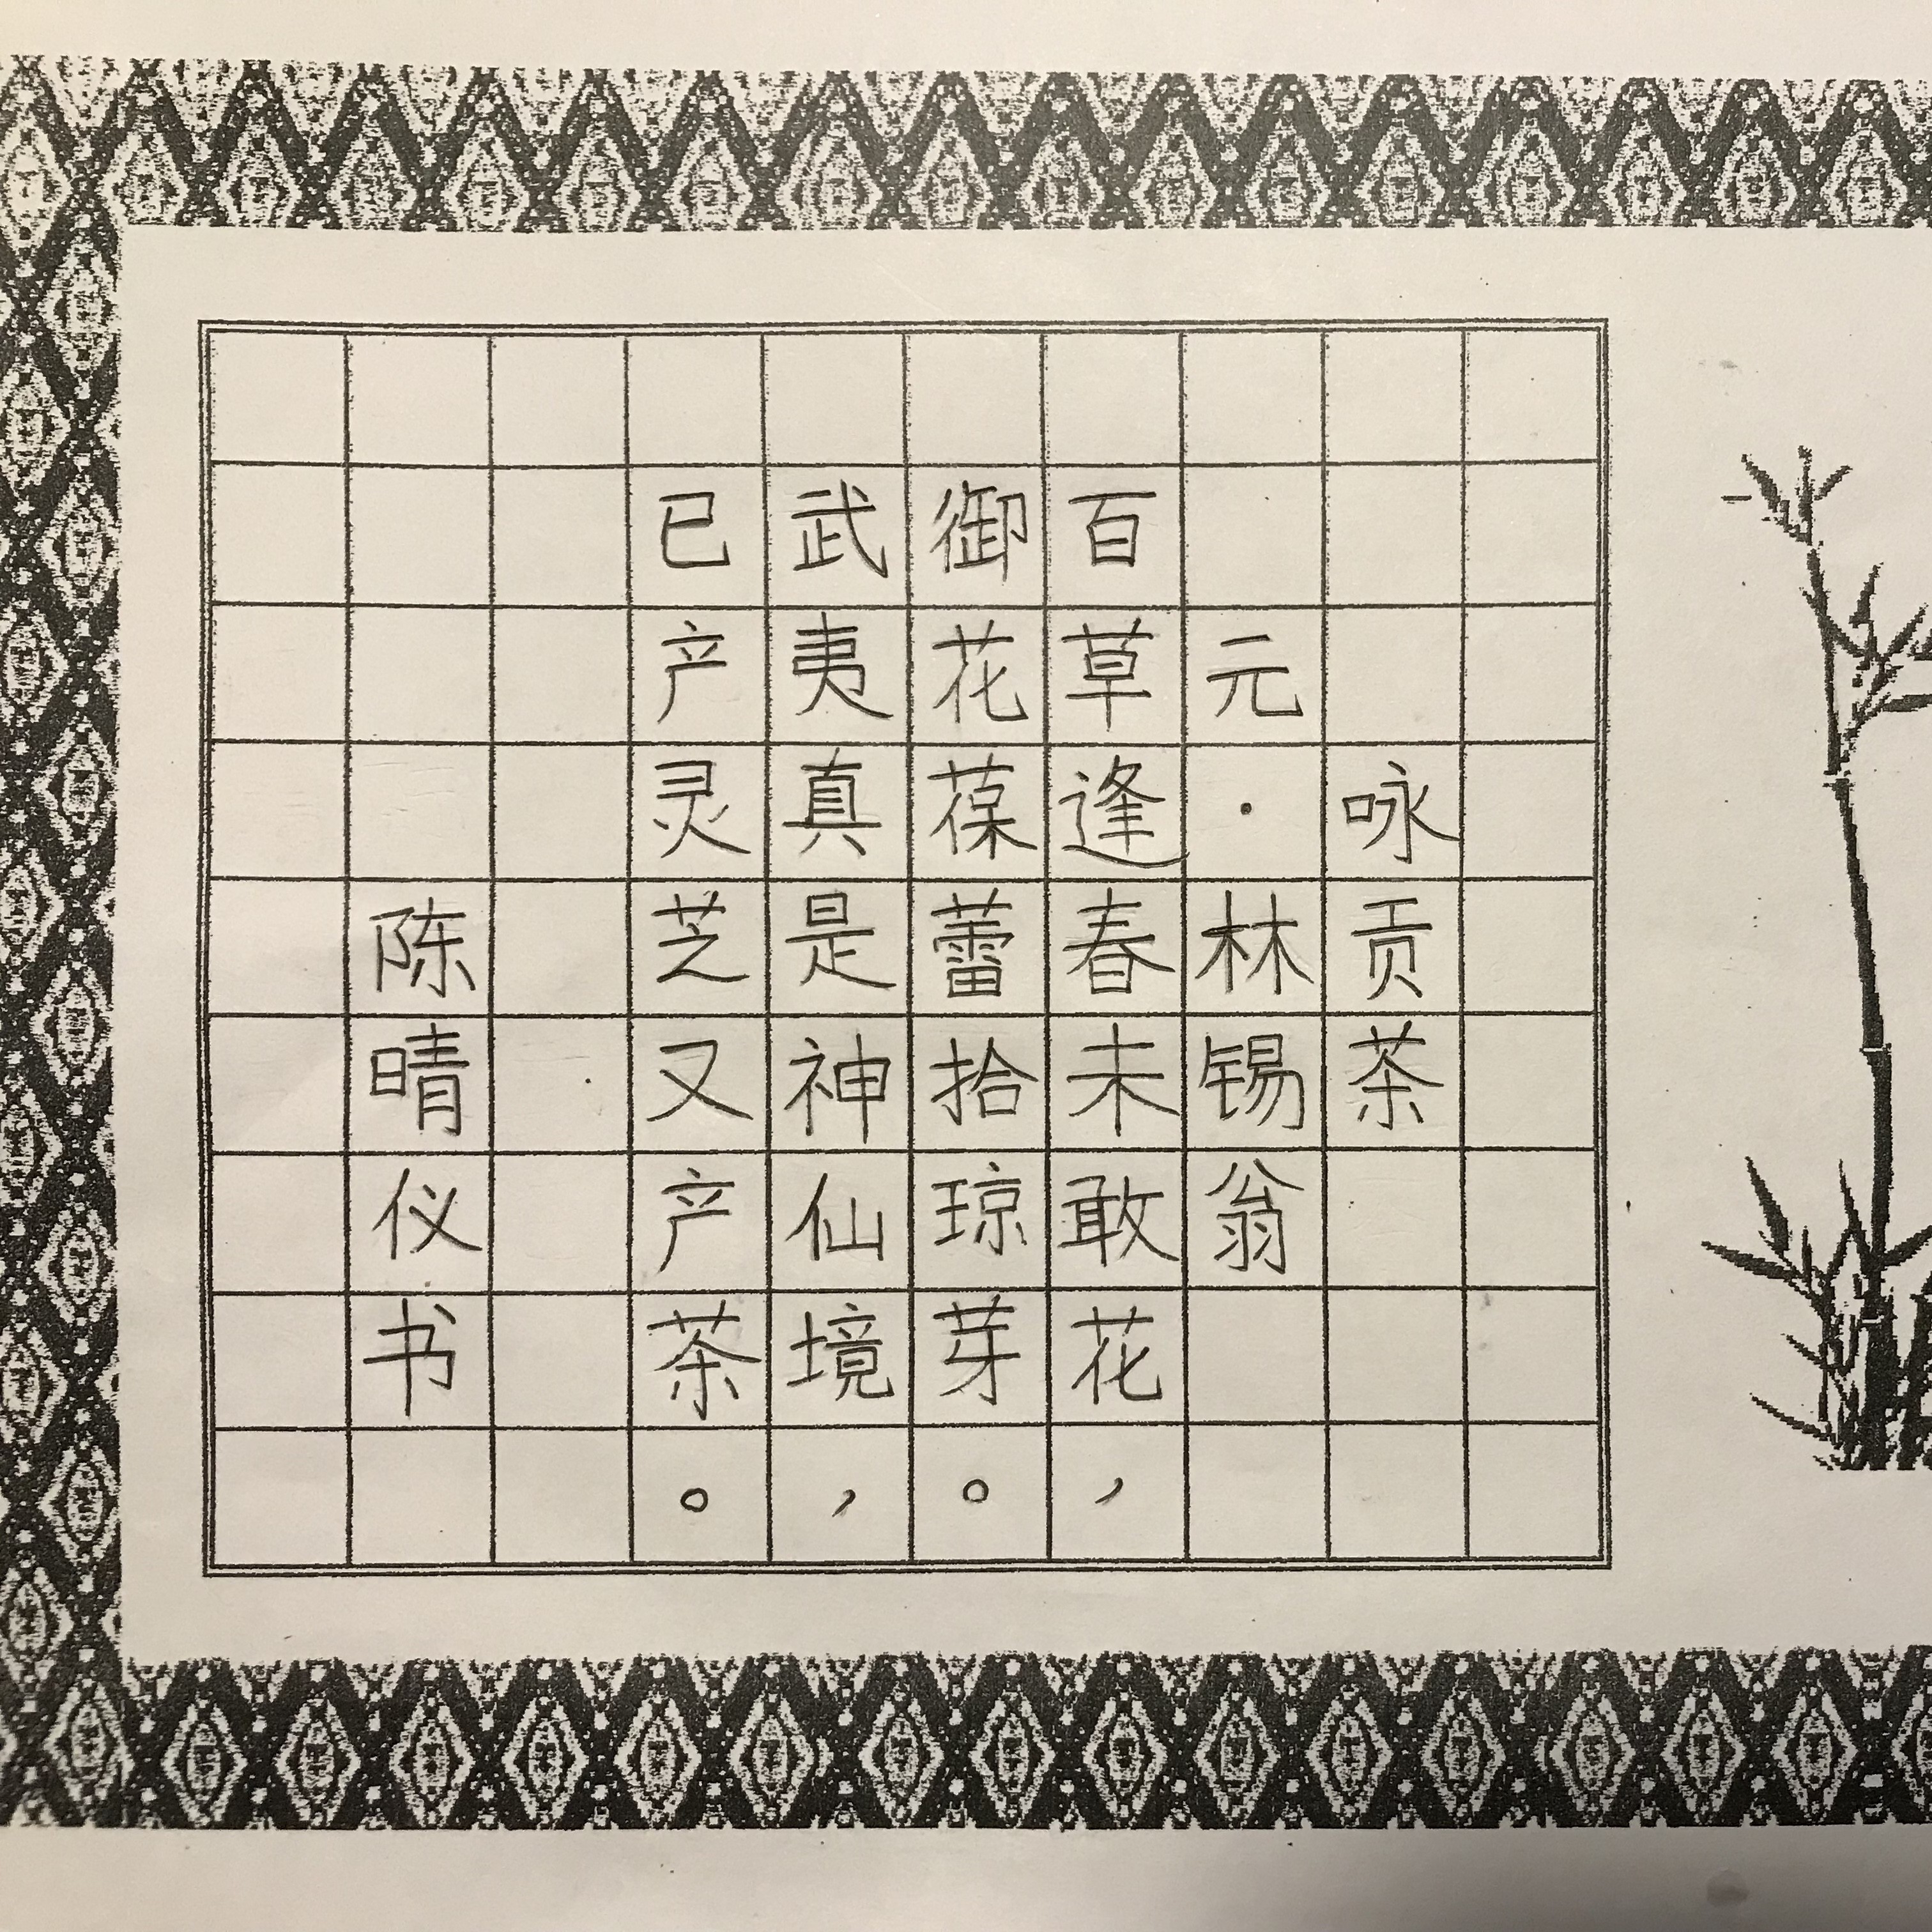 咏贡茶
元·林锡翁
百草逢春未敢花，
御花葆蕾拾琼芽。
武夷真是神仙境，
已产灵芝又产茶。
陈晴仪书